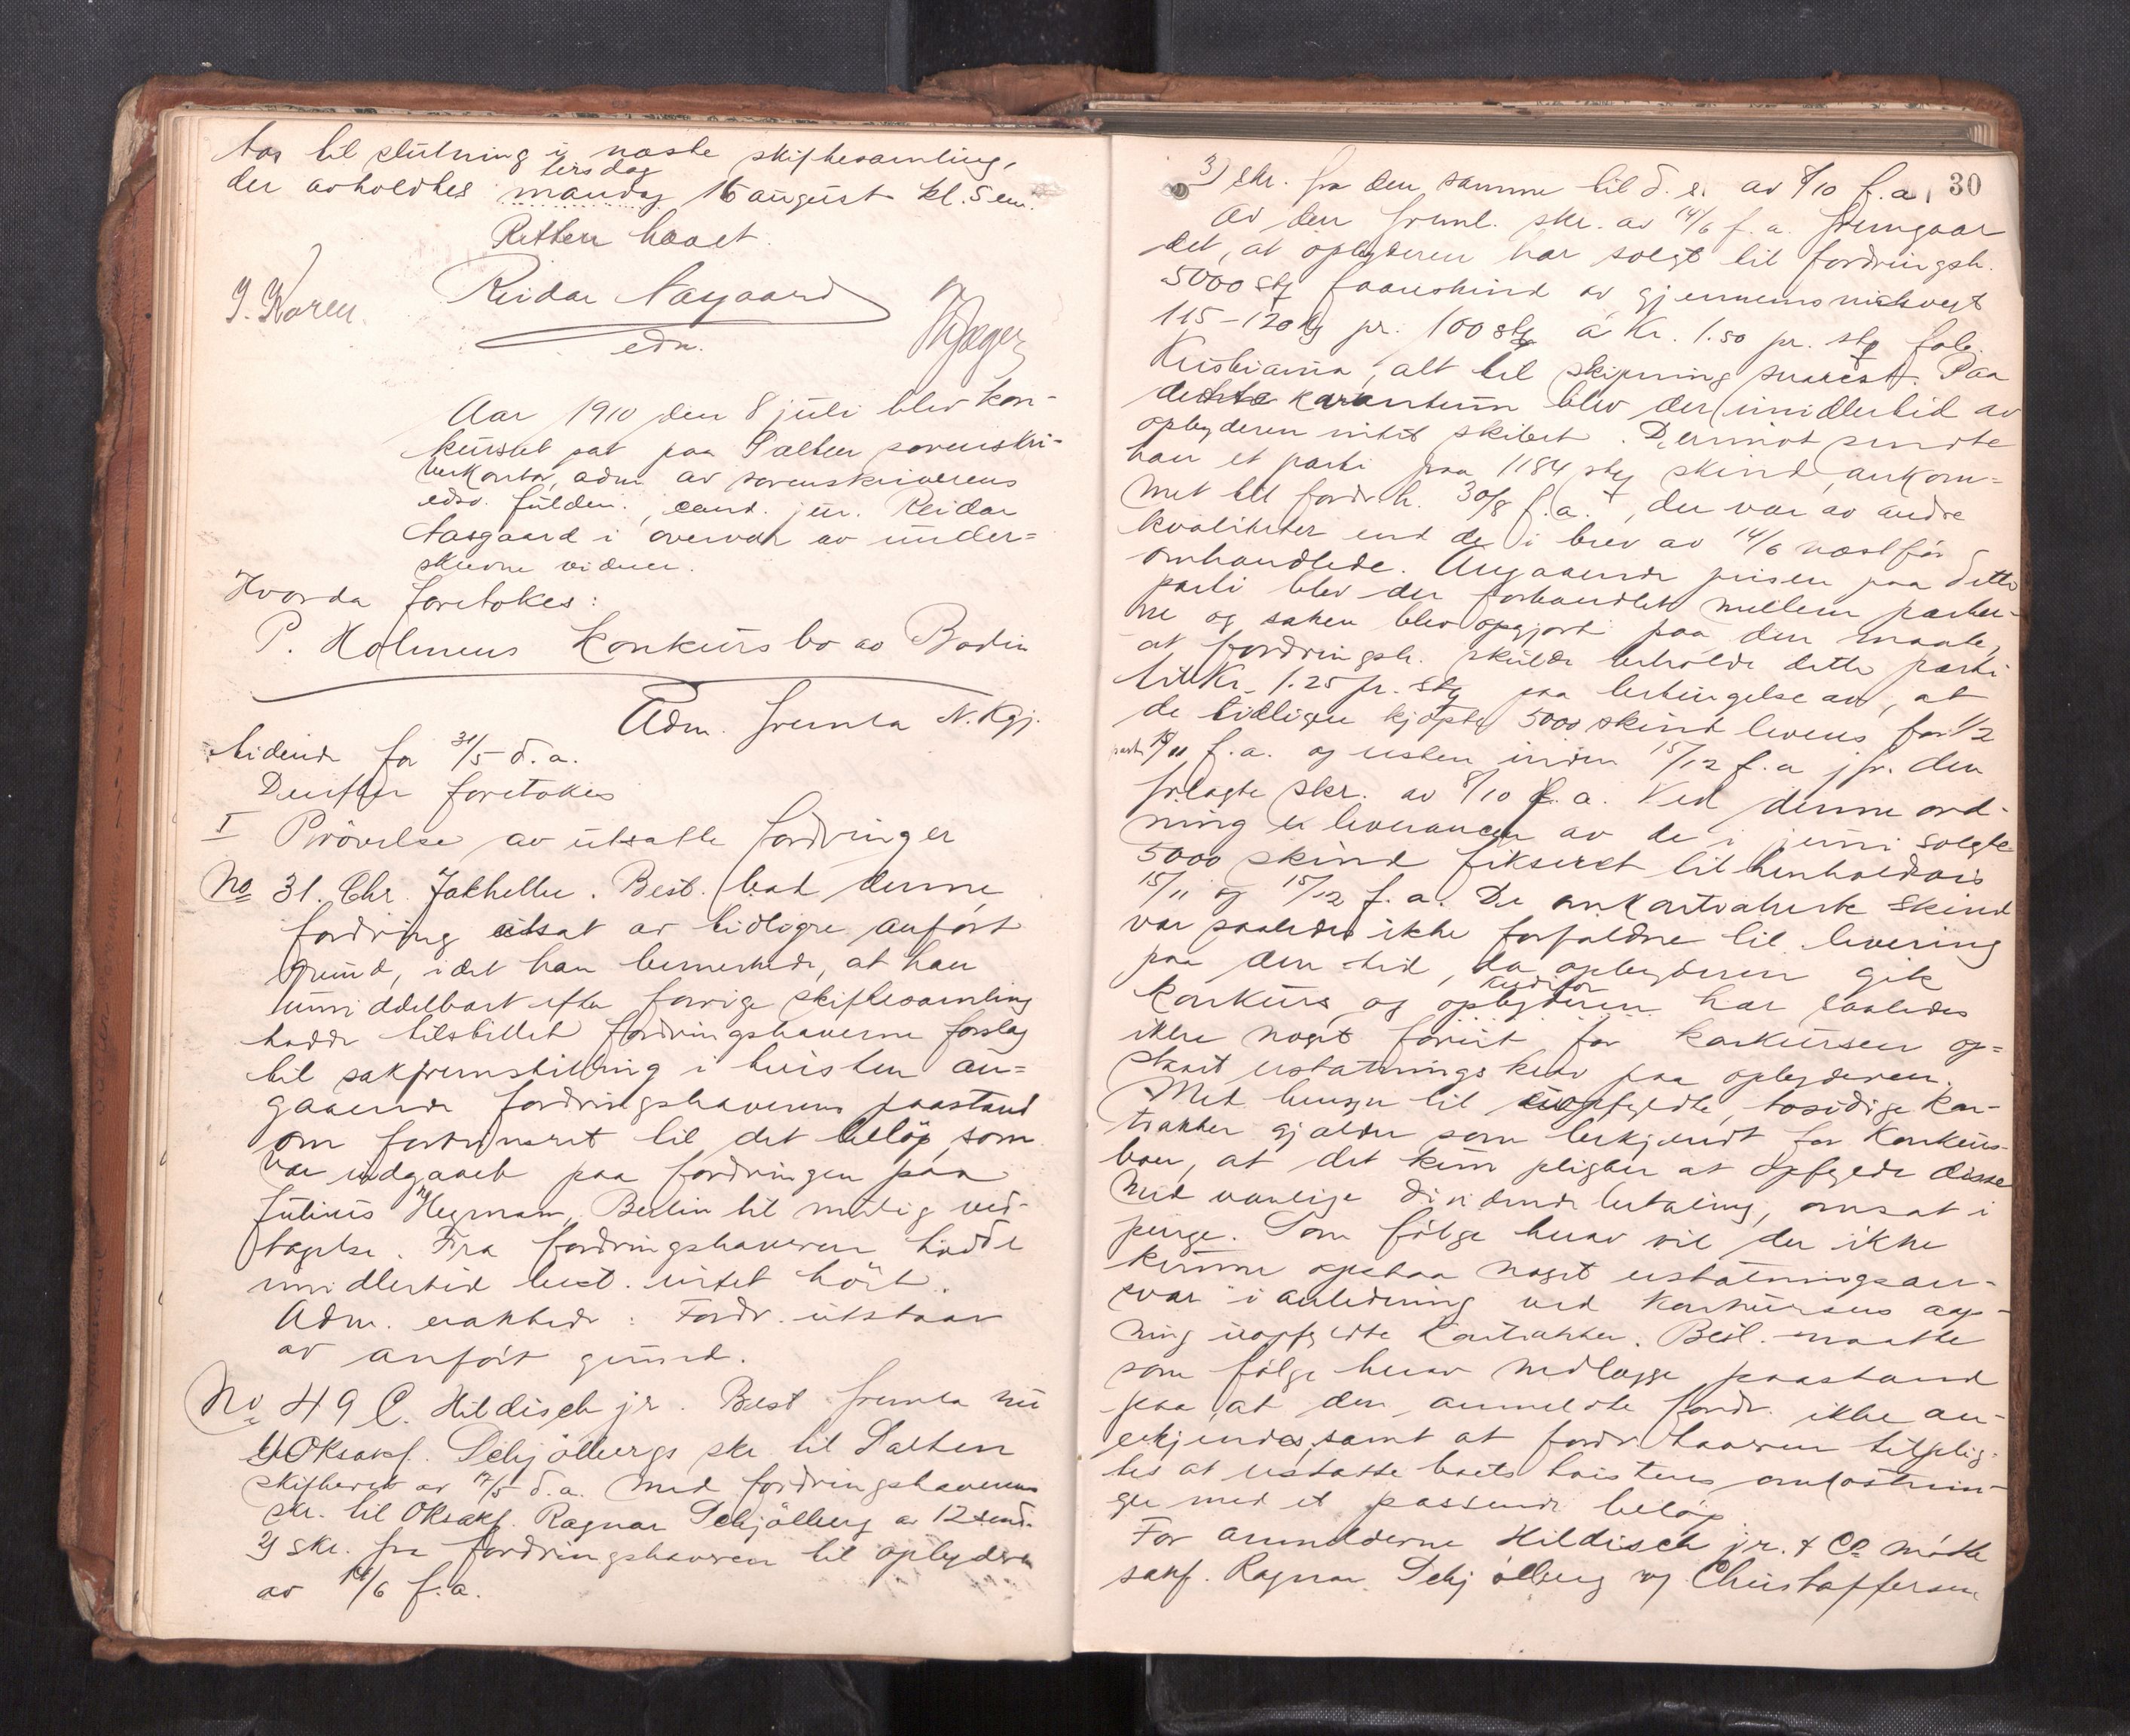 tas til slutning i næste skiftesamling,
tirsdag
der avholdtes mandag 16 august kl. 5 em.
Retten hævet.
J. Koren. Reidar Aasgaard
edsv.
Aar 1910 den 8 juli blev kon-
kursret sat paa Salten sorenskri-
verkontor, adm. av sorenskriverens
edsv. fuldm., cand. jur. Reidar
Aasgaard i overvær av under-
skrevne vidner.
Hvorda foretokes:
P. Holmens konkursbo av Bodin
Adm. fremla N. Kgj.
tidende for 31/5 d.a.
Derefter foretokes
I Prövelse av utsatte fordringer
No 31. Chr. Jakhelln. Best. bad denne
fordring utsat av tidligre anfört
grund, idet han bemerkede, at han
umiddelbart efter forrige skiftesamling
hadde tilstillet fordringshaverne forslag
til sakfremstilling i tvisten an-
gaaende fordringshaverens paastand
om fortrinsret til det belöp, som
var indgaaet paa fordringen paa
Julius Heymann, Berlin til mulig ved-
tagelse. Fra fordringshaveren hadde
imidlertid best. intet hört.
Adm. eraktede: Fordr. utstaar
av anfört grund.
No 49 C. Hildisch jr. Best fremla nu
1) Oksakf. Schjölbergs skr. til Salten
skifteret av 17/5 d.a. med fordringshaverens
skr. til Oksakf. Ragnar Schjölberg av 12 s.md.
2) skr. fra fordringshaveren til opbyderen
av 14/6 f.a.
30
3) skr. fra den samme til d.s. av 8/10 f.a.
Av den freml. skr. av 14/6 f.a. fremgaar
det, at opbyderen har solgt til fordringsh.
5000 stk faareskind av gjennemsnitsvegt
115-120 kg pr. 100 stk à Kr. 1.50 pr. stk fob.
Kristiania, alt til skipning snarest. Paa
dette kvantum blev der imidlertid av
opbyderen intet skibet. Derimot sendte
han et parti paa 1184 stk skind, ankom-
met til fordr.h. 30/8 f.a., der var av andre
kvaliteter end de i brev av 14/6 næstför
omhandlede. Angaaende prisen paa dette
parti blev der forhandlet mellem parter-
ne og saken blev opgjort paa den maate,
at fordringsh. skulde beholde dette parti
til Kr. 1.25 pr. stk paa betingelse av, at
de tidligere kjöpte 5000 skind leveres for 1/2
part 15/11 f.a. og resten inden 15/12 f.a. jfr. den
frlagte skr. av 8/10 f.a. Ved denne ord-
ning er leverancen av de i juni solgte
5000 skind fikseret til henholdsvis
15/11 og 15/12 f.a. De omkontraherte skind
var saaledes ikke forfaldne til levering
paa den tid, da opbyderen gik
kreditor
konkurs, og opbyderen har saaledes
ikke noget forut for konkursen op-
staat erstatningskrav paa opbyderen.
Med hensyn til uopfyldte, tosidige kon-
trakter gjælder som bekjendt for konkurs-
boer, at det kun pligter at opfylde disse
med vanlige dividende betaling, omsat i
penge. Som fölge herav vil der ikke
kunne opstaa noget erstatningsan-
svar i anledning ved konkursens aap-
ning uopfyldte kontrakter. Best. maatte
som fölge herav nedlægge paastand
paa, at den anmeldte fordr. ikke an-
erkjendes, samt at fordr.haveren tilplig-
tes at erstatte boets tvistens omkostnin-
ger med et passende belöp
For anmelderne Hildisch jr. & Co mötte
sakf. Ragnar Schjölberg og Christoffersen